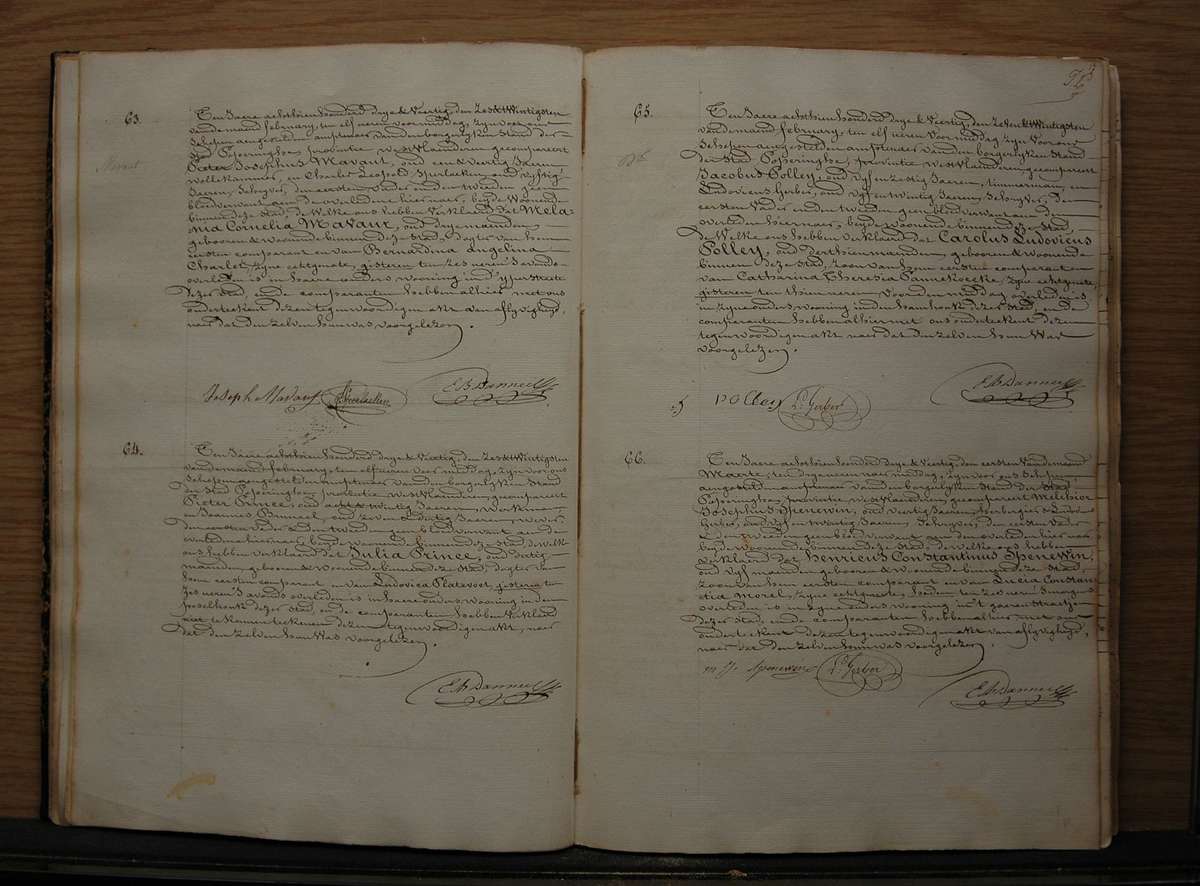 63.
Ten Jaere achthien honderd drye & Veertig, den Zes & twintigsten
van de maend february, ten elf uren voormiddag, zyn voor ons
Schepen aengesteld en amptenaer van den borgerlyken Stand der
Stad Poperinghe, provintie westvlaenderen, gecompareert
Pieter Josephus Mavaut, oud een & veertig Jaeren,
wollekammer, en Charles Leopold oud vyftig
Jaeren, Schryver, den eersten vader en den tweeden geen
bloedverwant aen de overledene hier naer, beyde Woonende
binnen deze Stad, de Welke ons hebben verklaerd dat Mela-
nia Cornelia Mavaut, oud drye maenden,
geboren & woonende binnen deze Stad, dogter van hem
eersten comparant en van Bernardina Angelina
Charlet, zyne echtgenote, gisteren ten zes uren 's avonds
overleden is in haere ouders wooning in d'
dezer Stad, ende de comparanten hebben alhier met ons
onderteekent dezen tegenwoordigen akt van aflyvigheyd,
naer dat den zelven hun was voorgelezen.
Joseph Mavaut
64.
Ten Jaere achthien honderd drye & Veertig, den Zes & twintigsten
van de maend february, ten elf uren voor middag, zyn voor ons
Schepen aengesteld en amptenaer van den borgerlyken Stand
der Stad Poperinghe, provintie westvlaenderen, gecompareert
Pieter Prince, oud acht & Jaeren, Werkman,
en Joannes Bruneel, oud zeven & dertig Jaeren, Wever,
den eersten vader & den tweeden geen bloedverwant aen de
overledene hier naer, beyde woonende binnen deze Stad, de welke
ons hebben verklaerd dat Julia Prince, oud dertig
maenden, geboren & woonende binnen deze Stad, dogter van
hem eersten comparant en van Ludovica Platevoet, gisteren ten
zes uren 's avonds overleden is in haere ouders wooning in den
dezer Stad, en de comparanten hebben verklaerd
niet te konnen teekenen dezen tegenwoordigen akt, naer
dat den zelven hun was voorgelezen.
65.
Ten Jaere achthien honderd drye & Veertig, den zeven & twintigsten
van de maend february, ten elf uren voor middag zyn voor ons
Schepen aengesteld en amptenaer van den borgerlyken Stand
der Stad Poperinghe, provintie westvlaenderen, gecompareert
Jacobus Polley, oud vyf en zestig Jaeren, timmerman, en
Ludovicus Gerber, oud vyf en twintig Jaeren, Schryver, den
eersten vader en den tweeden geen bloedverwant aen den
overleden hier naer, beyde woonende binnen deze Stad,
de Welke ons hebben verklaerd dat Carolus Ludovicus
Polley, oud derthien maenden, geboren & woonende
binnen deze Stad, zoon van hem eersten comparant en
van Catharina Theresia Pannekoecke, zyne echtgenote,
gisteren ten thien uren voor den middag overleden is
in zyne ouders wooning in den dezer Stad, en de
comparanten hebben alhier met ons onderteekent dezen
tegenwoordigen akt naer dat den zelven hun Was
voorgelezen.
Polley L. Gerber
66.
Ten Jaere achthien honderd drye & Veertig, den eersten van de maend
Maerte, ten drye uren naer middag, zyn voor ons Schepen
aengesteld amptenaer van den borgerlyken Stand der Stad
Poperinghe, provintie westvlaenderen, gecompareert Melchior
Josephus Spenewin, oud veertig Jaeren, herbergier & Ludovicus
Gerber, oud vyf en twintig Jaeren, Schryver, den eersten vader
& den tweeden geen bloedverwant aen den overleden hier naer
beyde woonende binnen deze Stad, de welke ons hebben
verklaerd dat Henricus Constantinus Spenewin,
oud vyf maenden, geboren & woonende binnen deze Stad,
zoon van hem eersten comparant en van Lucia Constan-
tia Morel, zyne echtgenote, heden ten zes uren 's morgens
overleden is in zyne ouders wooning in 't gaeren straetjen
dezer Stad, ende comparanten hebben alhier met ons
onderteekent dezen tegenwoordigen akt van aflyvigheyd,
naer dat den zelven hun was voorgelezen.
M. J. Spenewin L. Gerber